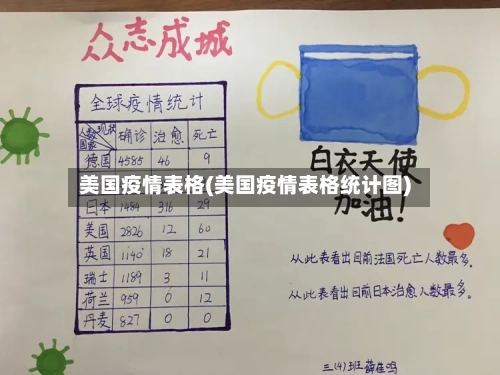 众志成城
全球疫情统计
人数 现状 国家 确诊 治愈 死亡
德国 4585 46 9
美国疫情表格(美国疫情表格统计图)
日本 1484 316 29
美国 2826 12 60
英国 1140 18 21
瑞士 1189 3 11
荷兰 959 0 12
丹麦 827 0 0
白衣天使
加油!
从此表看出目前法国死亡人数最多.
从此表看出目前日本治愈人数最多。
三(4)班